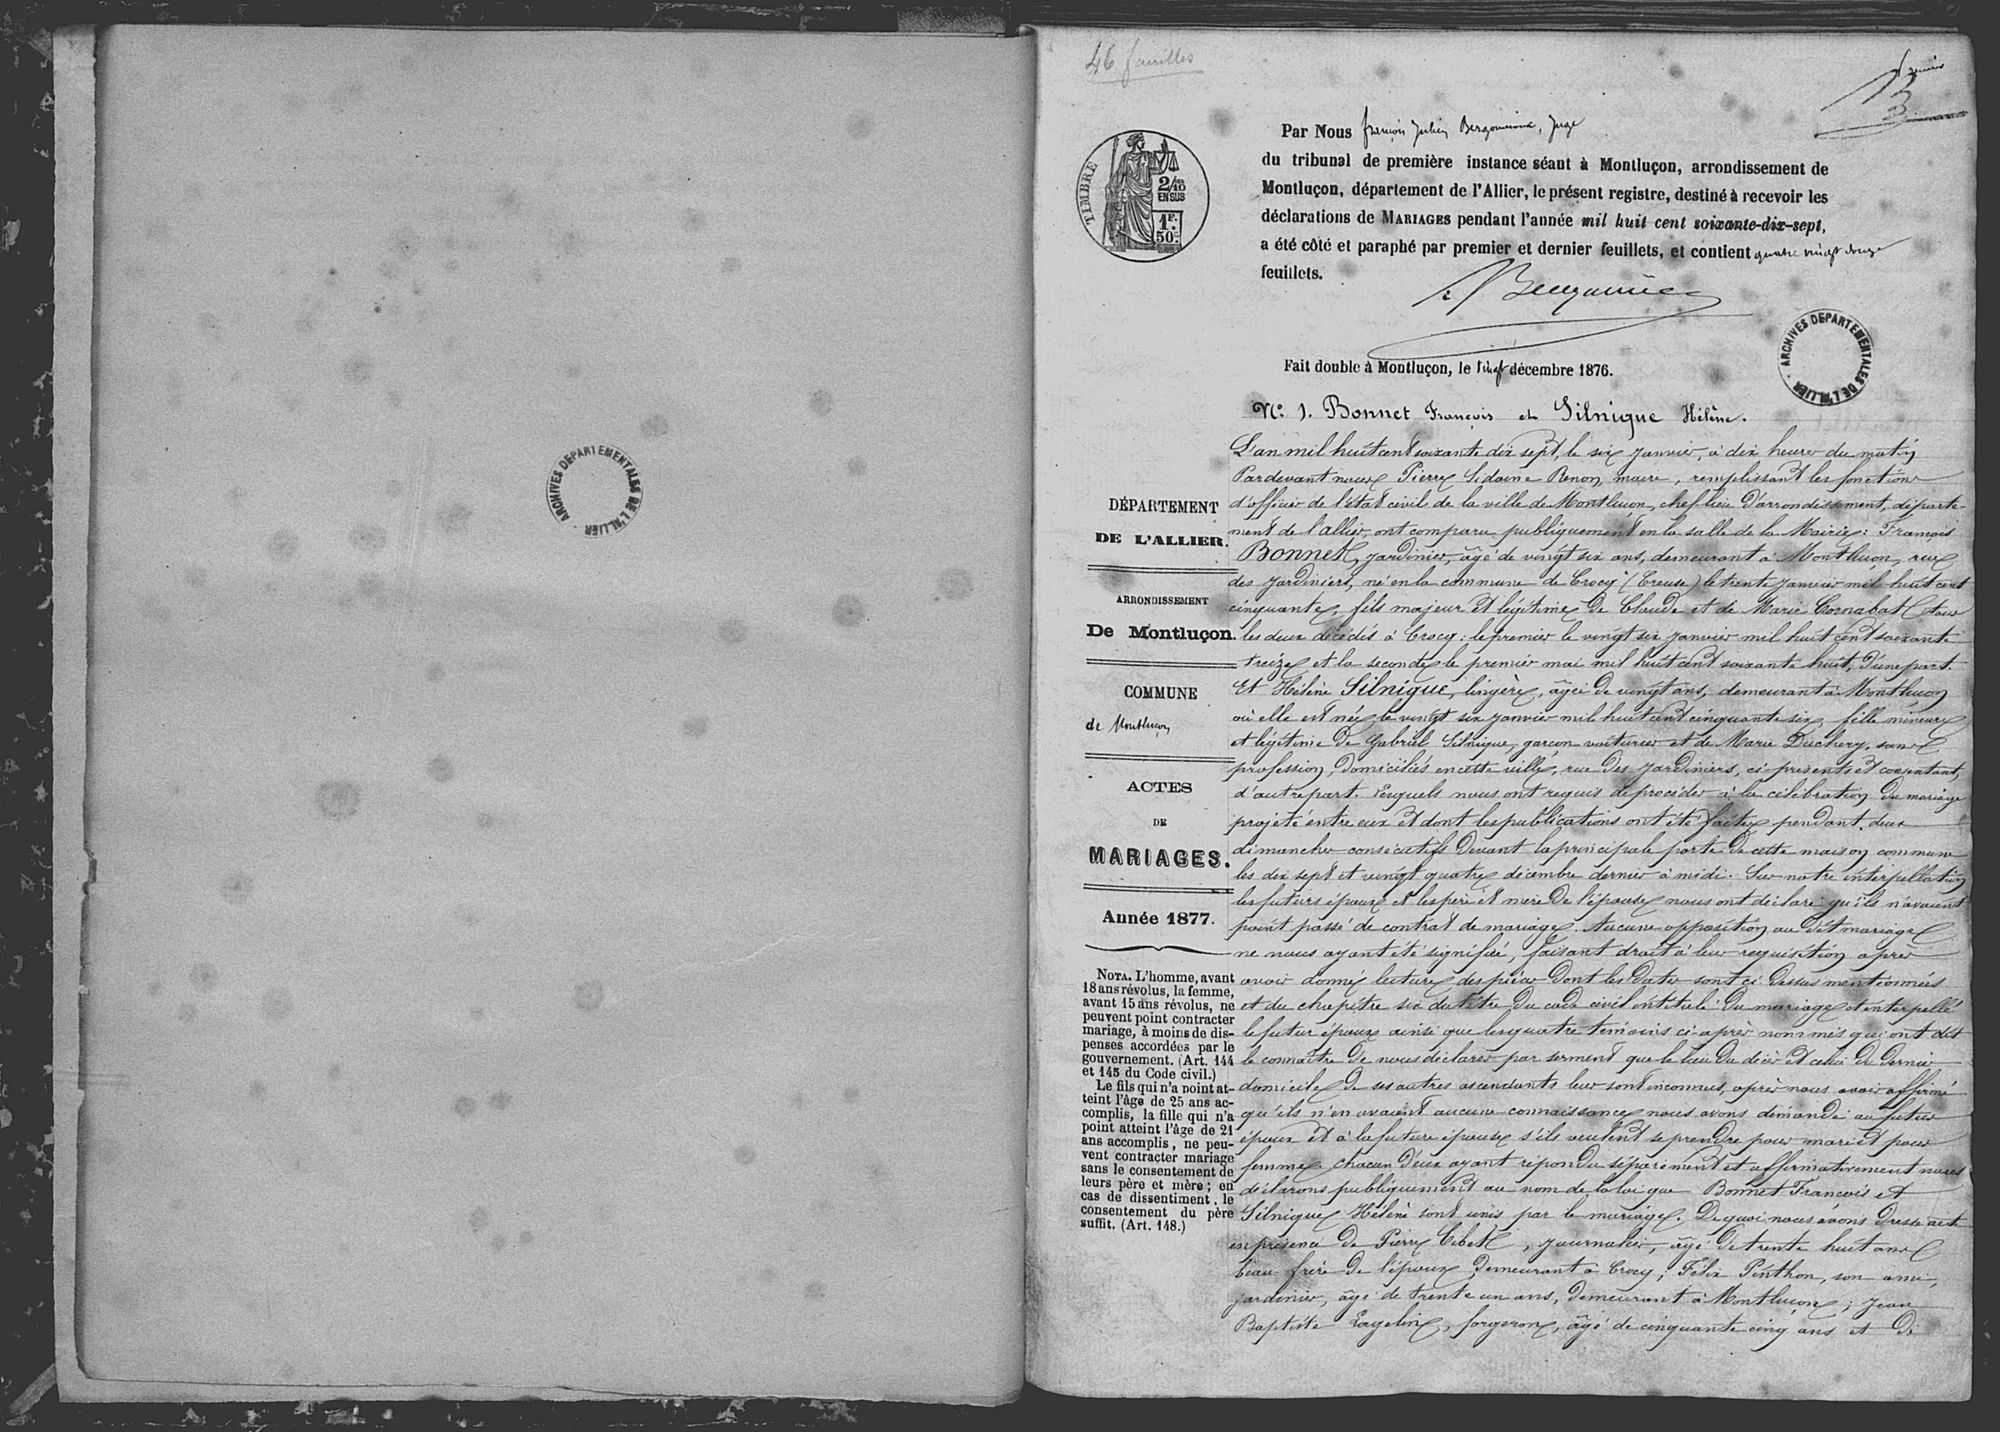 ARCHIVES DEPARTEMENTALES DE L'ALLIER
46 feuilles
Premier
TIMBRE
2/10 EN SUS
1F. 50c.
Par Nous François Julien, Juge
du tribunal de première instance séant à Montluçon, arrondissement de
Montluçon, département de l'Allier, le présent registre, destiné à recevoir les
déclarations de MARIAGES pendant l'année mil huit cent soixante-dix-sept,
a été côté et paraphé par premier et dernier feuillets, et contient quatre vingt douze
feuillets.
ARCHIVES DEPARTEMENTALES DE L'ALLIER
Fait double à Montluçon, le vingt décembre 1876.
N° 1. Bonnet François et Silnique Hélène.
DÉPARTEMENT
DE L'ALLIER.
ARRONDISSEMENT
De Montluçon.
COMMUNE
de Montluçon
ACTES
DE
MARIAGES.
Année 1877.
NOTA. L'homme, avant
18 ans révolus, la femme,
avant 15 ans révolus, ne
peuvent point contracter
mariage, à moins de dis-
penses accordées par le
gouvernement. (Art. 144
et 145 du Code civil.)
Le fils qui n'a point at-
teint l'âge de 25 ans ac-
complis, la fille qui n'a
point atteint l'âge de 21
ans accomplis, ne peu-
vent contracter mariage
sans le consentement de
leurs père et mère; en
cas de dissentiment, le
consentement du père
suffit. (Art. 148.)
L'an mil huit cent soixante dix sept, le six janvier, à dix heures du matin
Pardevant nous Pierre Sidoine Renon, maire, remplissant les fonctions
d'officier de l'état civil de la ville de Montluçon, chef-lieu d'arrondissement, départe-
ment de l'allier, ont comparu publiquement en la salle de la Mairie: François
Bonnet, jardinier, âgé de vingt six ans, demeurant à Montluçon, rue
des jardiniers, né en la commune de Crocq (Creuse) le trente janvier mil huit cent
cinquante, fils majeur et légitime de Claude et de Marie Cornabat tous
les deux décédés à Crocq: le premier le vingt six janvier mil huit cent soixante
treize et la seconde le premier mai mil huit cent soixante huit, d'une part.
Et Hélène Silnique, lingère, âgée de vingt ans, demeurant à Montluçon
où elle est née, le vingt six janvier mil huit cent cinquante six, fille mineure
et légitime de Gabriel Silnique, garçon voiturier et de Marie Duchery, sans
profession, domiciliés en cette ville, rue des jardiniers, ci-présents et consentant,
d'autre part. Lesquels nous ont requis de procéder à la célébration du mariage
projeté entre eux et dont les publications ont été faites pendant deux
dimanches consécutifs devant la principale porte de cette maison commune
les dix sept et vingt quatre décembre dernier à midi. Sur notre interpellation
les futurs époux et les père et mère de l'épouse nous ont déclaré qu'ils n'avaient
point passé de contrat de mariage. Aucune opposition au dit mariage
ne nous ayant été signifiée, faisant droit à leur réquisition après
avoir donné lecture des pièces dont les dates sont ci-dessus mentionnées
et du chapitre six du titre du code civil intitulé: Du mariage et interpellé
le futur époux ainsi que les quatre témoins ci-après nommés qui ont dit
le connaître de nous déclarer par serment que le lieu du décès et celui du dernier
domicile de ses autres ascendants leur sont inconnus, après nous avoir affirmé
qu'ils n'en avaient aucune connaissance, nous avons demandé au futur
époux et à la future épouse s'ils veulent se prendre pour mari et pour
femme. chacun d'eux ayant répondu séparément et affirmativement nous
déclarons publiquement au nom de la loi que Bonnet François et
Silnique Hélène sont unis par le mariage. De quoi nous avons dressé acte
en présence de Pierre Cibet, journalier, âgé de trente huit ans
beau-frère de l'époux demeurant à Crocq; Félix Pinthon, son ami,
jardinier, âgé de trente un ans, demeurant à Montluçon; Jean
Baptiste, forgeron, âgé de cinquante cinq ans et de